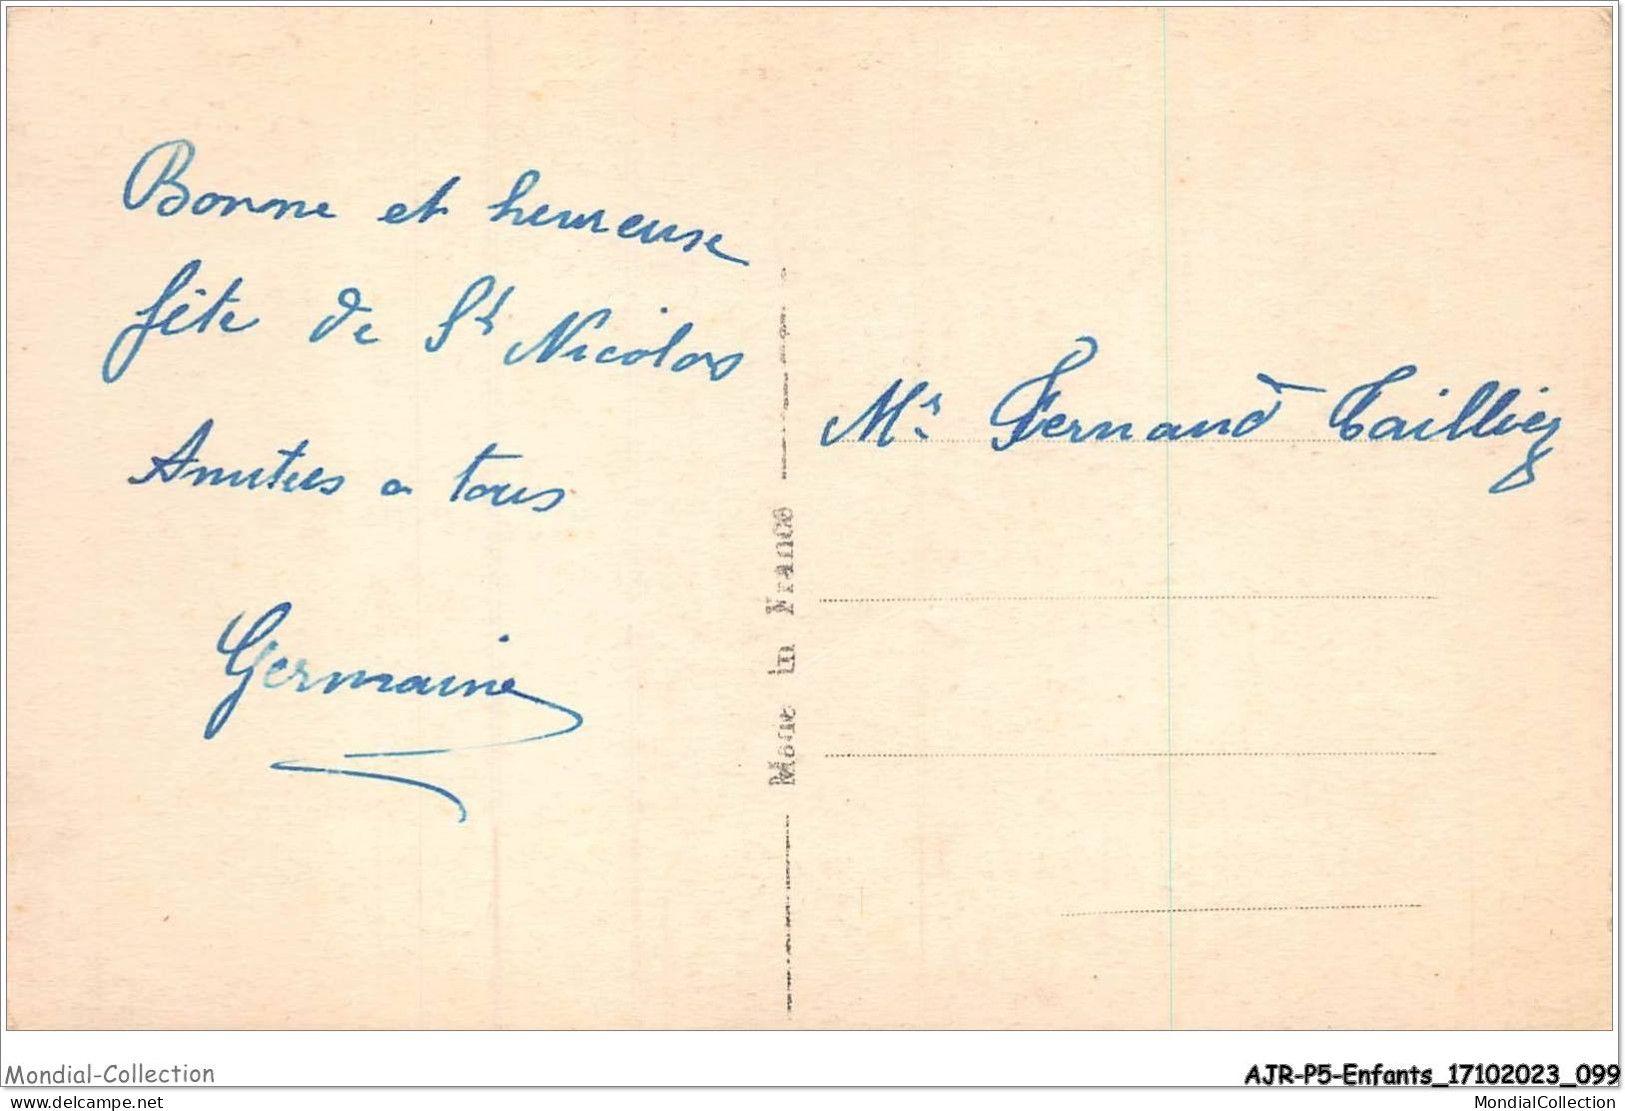 Bonne et heureuse
fête de St Nicolas
Amitiés a tous
Germaine
Made in France
Mr Fernand Tailliez
Mondial-Collection
AJR-P5-Enfants_17102023_099
delcampe.net
MondialCollection